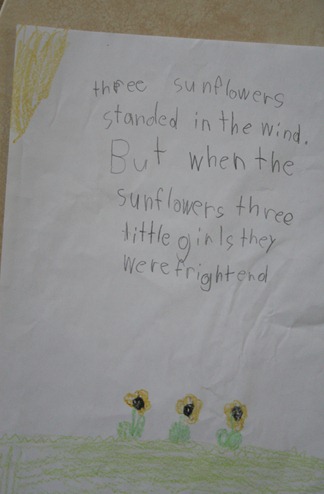 three sunflowers
standed in the wind.
But when the
sunflowers three
little girls they
were frightend